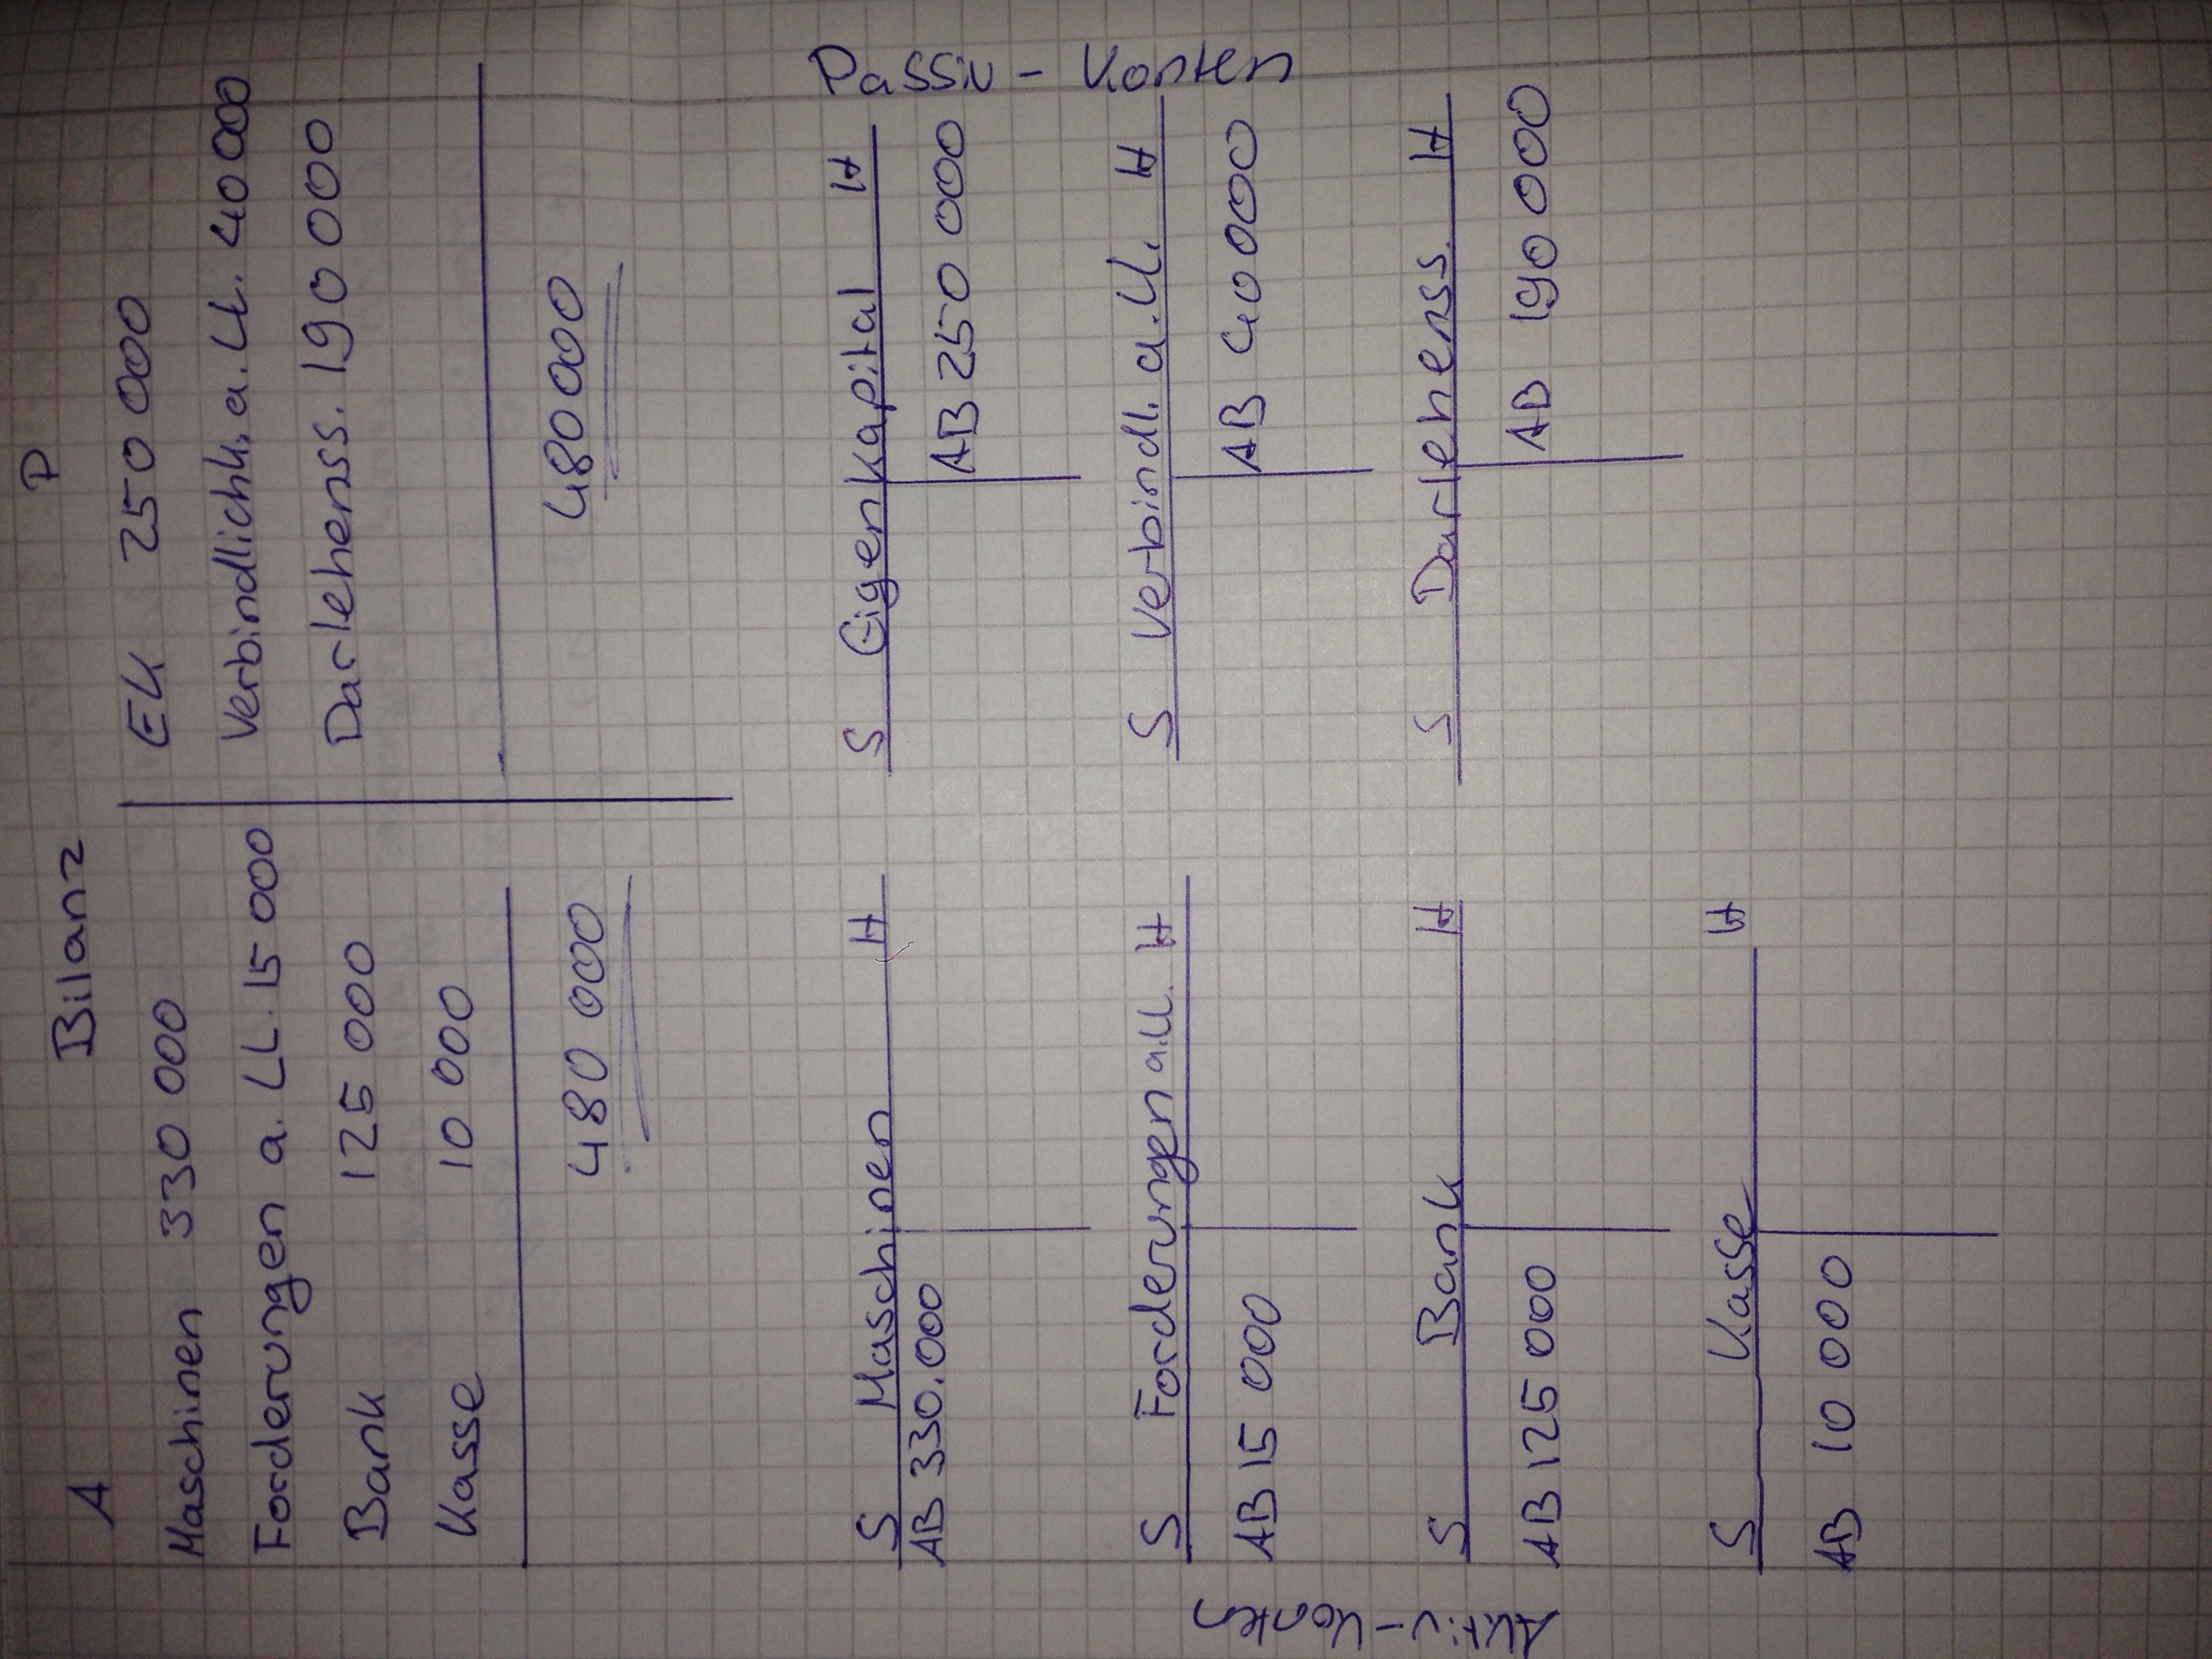 A Bilanz P
Maschinen 330 000 EK 250 000
Forderungen a. LL. 15 000 Verbindlichk. a. LL. 40 000
Bank 125 000 Darlehenss. 190 000
Kasse 10 000
480 000 480 000
S Maschinen H S Eigenkapital H
AB 330.000 AB 250 000
S Forderungen a LL. H S Verbindl. a. LL. H
AB 15 000 AB 40 000
S Bank H S Darlehenss. H
AB 125 000 AB 190 000
S Kasse H
AB 10 000
Aktiv-Konten
Passiv-Konten